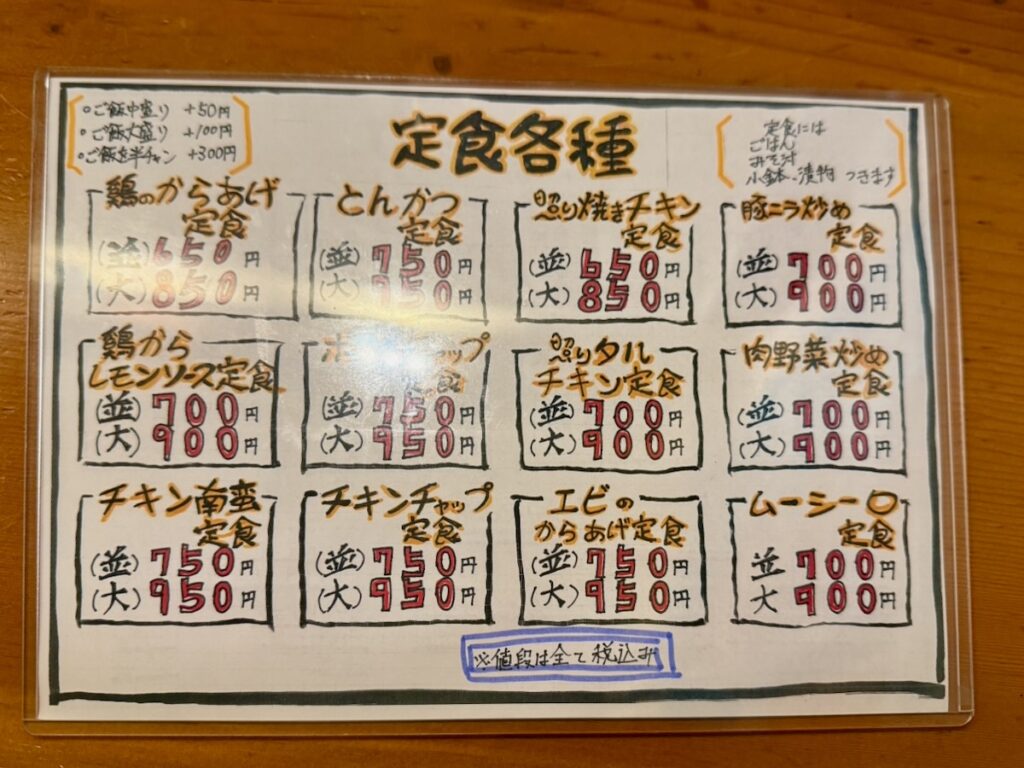 ○ご飯中盛り +50円
○ご飯大盛り +100円
○ご飯を半チャン +300円
定食各種
定食には
ごはん
みそ汁
小鉢、漬物 つきます
鶏のからあげ
定食
(並) 650円
(大) 850円
とんかつ
定食
(並) 750円
(大) 950円
照り焼きチキン
定食
(並) 650円
(大) 850円
豚ニラ炒め
定食
(並) 700円
(大) 900円
鶏から
レモンソース定食
(並) 700円
(大) 900円
ポークチャップ
定食
(並) 750円
(大) 950円
照りタル
チキン定食
(並) 700円
(大) 900円
肉野菜炒め
定食
(並) 700円
(大) 900円
チキン南蛮
定食
(並) 750円
(大) 950円
チキンチャップ
定食
(並) 750円
(大) 950円
エビの
からあげ定食
(並) 750円
(大) 950円
ムーシーロ
定食
並 700円
大 900円
※値段は全て税込み